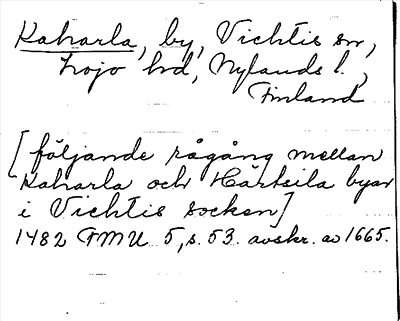 Kaharla, by, Vichtis sn,
Lojo hd, Nylands l.,
Finland
[följande rågång mellan
Kaharla och Härtsila byar
i Vichtis socken]
1482 FMU 5, s. 53. avskr. av 1665.